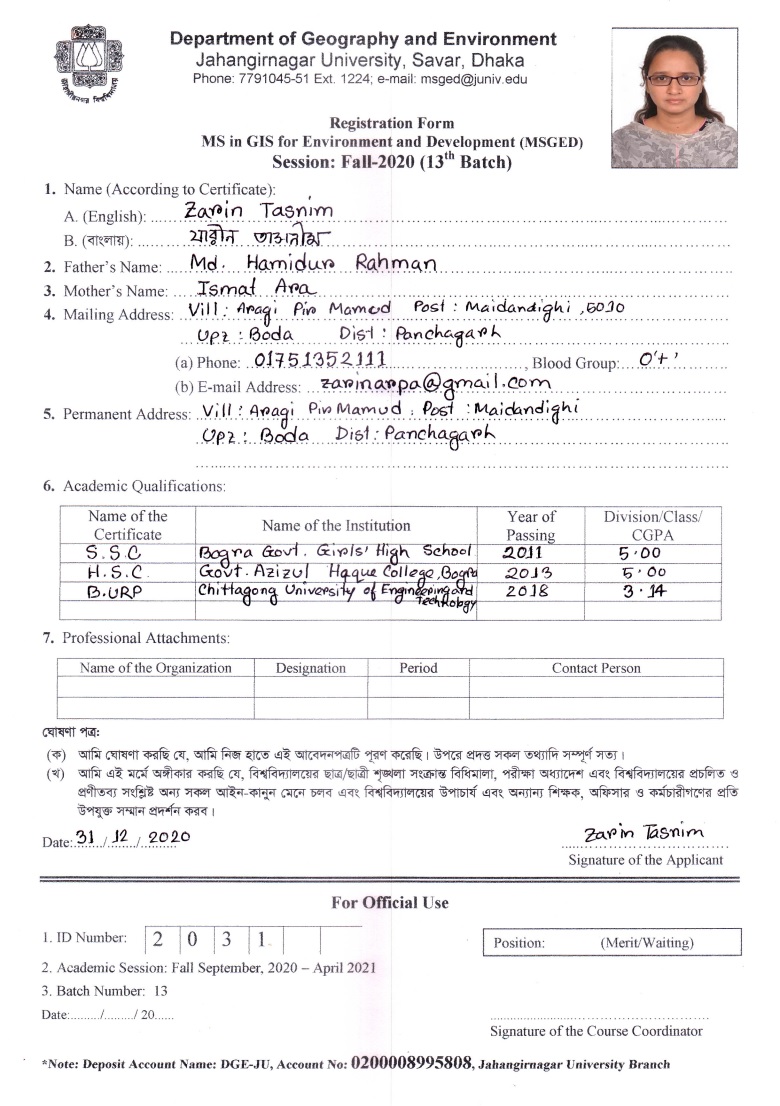 Department of Geography and Environment
Jahangirnagar University, Savar, Dhaka
Phone: 7791045-51 Ext. 1224; e-mail: msged@juniv.edu
Registration Form
MS in GIS for Environment and Development (MSGED)
Session: Fall-2020 (13th Batch)
1. Name (According to Certificate):
A. (English): Zarin Tasnim
B. (বাংলায়): যারীন তাসনীম
2. Father's Name: Md. Hamidur Rahman
3. Mother's Name: Ismat Ara
4. Mailing Address: Vill: Aragi Pir Mamud Post: Maidandighi, 5010
Upz: Boda Dist: Panchagarh
(a) Phone: 01751352111, Blood Group: O'+'
(b) E-mail Address: zarinarpa@gmail.com
5. Permanent Address: Vill: Aragi Pir Mamud, Post: Maidandighi
Upz: Boda Dist: Panchagarh
6. Academic Qualifications:
Name of the Certificate Name of the Institution Year of Passing Division/Class/ CGPA
S.S.C Bogra Govt. Girls' High School 2011 5.00
H.S.C. Govt. Azizul Haque College, Bogra 2013 5.00
B.URP Chittagong University of Engineering and Technology 2018 3.14
7. Professional Attachments:
Name of the Organization Designation Period Contact Person
ঘোষণা পত্র:
(ক) আমি ঘোষণা করছি যে, আমি নিজ হাতে এই আবেদনপত্রটি পূরণ করেছি। উপরে প্রদত্ত সকল তথ্যাদি সম্পূর্ণ সত্য।
(খ) আমি এই মর্মে অঙ্গীকার করছি যে, বিশ্ববিদ্যালয়ের ছাত্র/ছাত্রী শৃঙ্খলা সংক্রান্ত বিধিমালা, পরীক্ষা অধ্যাদেশ এবং বিশ্ববিদ্যালয়ের প্রচলিত ও
প্রণীতব্য সংশ্লিষ্ট অন্য সকল আইন-কানুন মেনে চলব এবং বিশ্ববিদ্যালয়ের উপাচার্য এবং অন্যান্য শিক্ষক, অফিসার ও কর্মচারীগণের প্রতি
উপযুক্ত সম্মান প্রদর্শন করব।
Date: 31/12/2020 Zarin Tasnim
Signature of the Applicant
For Official Use
1. ID Number: 2 0 3 1 Position: (Merit/Waiting)
2. Academic Session: Fall September, 2020 – April 2021
3. Batch Number: 13
Date:........./........./ 20......
Signature of the Course Coordinator
*Note: Deposit Account Name: DGE-JU, Account No: 0200008995808, Jahangirnagar University Branch